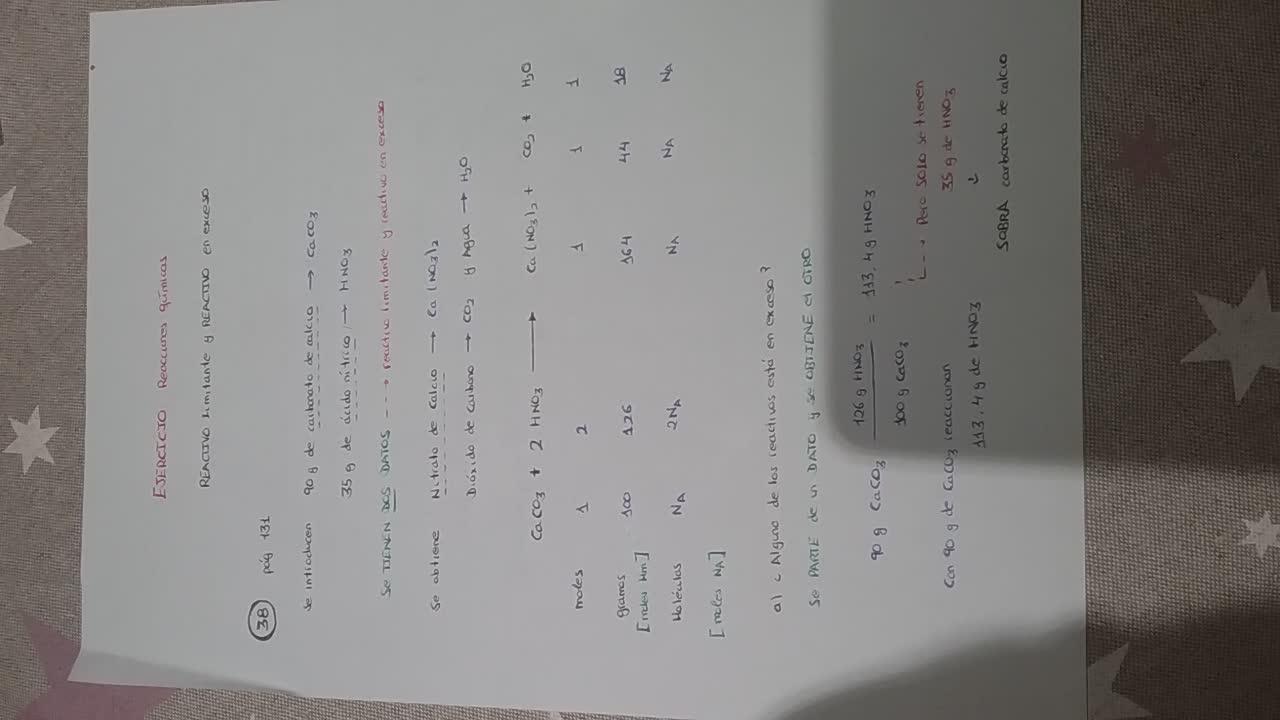 EJERCICIO Reacciones químicas
REACTIVO limitante y REACTIVO en exceso
38 pág 131
Se introducen 90 g de carbonato de calcio → CaCO3
35 g de ácido nítrico → HNO3
Se TIENEN DOS DATOS ---→ reactivo limitante y reactivo en exceso
Se obtiene Nitrato de Calcio → Ca(NO3)2
Dióxido de Carbono → CO2 y Agua → H2O
CaCO3 + 2 HNO3 → Ca(NO3)2 + CO2 + H2O
moles 1 2 1 1 1
gramos 100 126 164 44 18
[moles Mm]
Moléculas NA 2NA NA NA NA
[moles NA]
a) ¿Alguno de los reactivos está en exceso?
Se PARTE de un DATO y se OBTIENE el OTRO
90 g CaCO3 126 g HNO3 / 100 g CaCO3 = 113,4 g HNO3
Con 90 g de CaCO3 reaccionan
113,4 g de HNO3
→ Pero SOLO se tienen
35 g de HNO3
↓
SOBRA carbonato de calcio